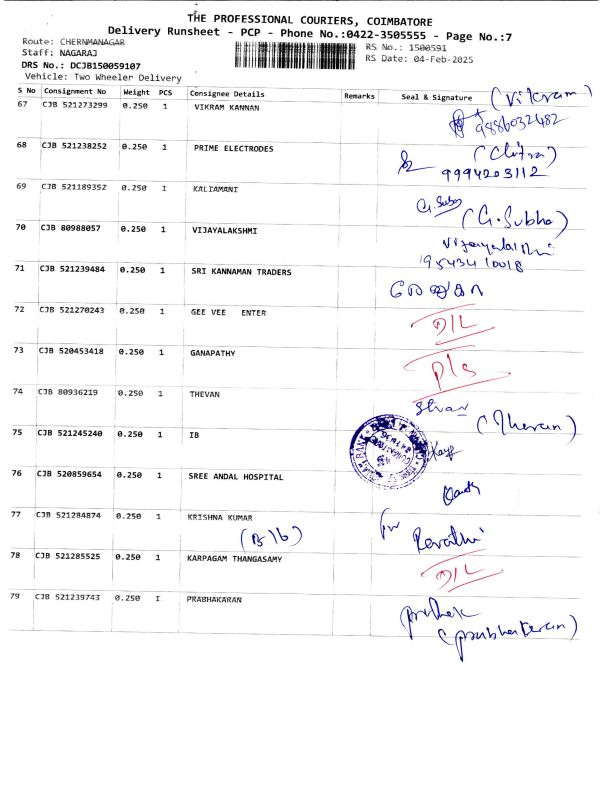 THE PROFESSIONAL COURIERS, COIMBATORE
Delivery Runsheet - PCP - Phone No.:0422-3505555 - Page No.:7
Route: CHERNMANAGAR
Staff: NAGARAJ
DRS No.: DCJB150059107
Vehicle: Two Wheeler Delivery
RS No.: 1500591
RS Date: 04-Feb-2025
S No Consignment No Weight PCS Consignee Details Remarks Seal & Signature
67 CJB 521273299 0.250 1 VIKRAM KANNAN (Vikram)
9886032482
68 CJB 521238252 0.250 1 PRIME ELECTRODES (Chitra)
9994203112
69 CJB 521189352 0.250 1 KALIAMANI G.Suba (G.Subha)
70 CJB 80988057 0.250 1 VIJAYALAKSHMI Vijayalakshmi
9543410018
71 CJB 521239484 0.250 1 SRI KANNAMAN TRADERS
72 CJB 521270243 0.250 1 GEE VEE ENTER D/L
73 CJB 520453418 0.250 1 GANAPATHY P/s
74 CJB 80936219 0.250 1 THEVAN (Thevan)
75 CJB 521245240 0.250 1 IB
76 CJB 520859654 0.250 1 SREE ANDAL HOSPITAL
77 CJB 521284874 0.250 1 KRISHNA KUMAR for Revathi
78 CJB 521285525 0.250 1 KARPAGAM THANGASAMY D/L
79 CJB 521239743 0.250 1 PRABHAKARAN
(prabhakaran)